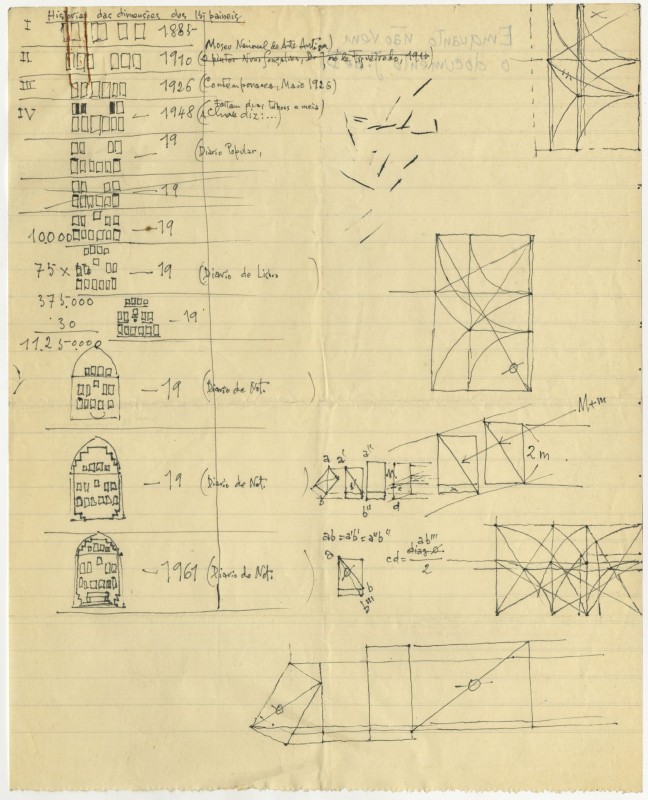 Historia das dimensões dos 15 paineis
I 1885-
(Museu Nacional de Arte Antiga)
II 1910 (O pintor Nuno Gonçalves, de José de Figueiredo, 1910
III 1926 (Contemporanea, Maio 1926)
(faltam duas taboas e meia)
IV — 1948
— 19 (Diario Popular,
— 19
10.000 — 19
75 x — 19 (Diario de Lisboa )
375.000
30 — 19
11.250.000
— 19 (Diario de Not. )
— 19 (Diario de Not. )
— 1961 (Diario de Not. )
Enquanto não vem
o documento
x
M+m
2 m
a a' a''
b b''
c
d
x
ab = a'b' = a''b''
a
b
b'''
cd = ab'''
diag.
2